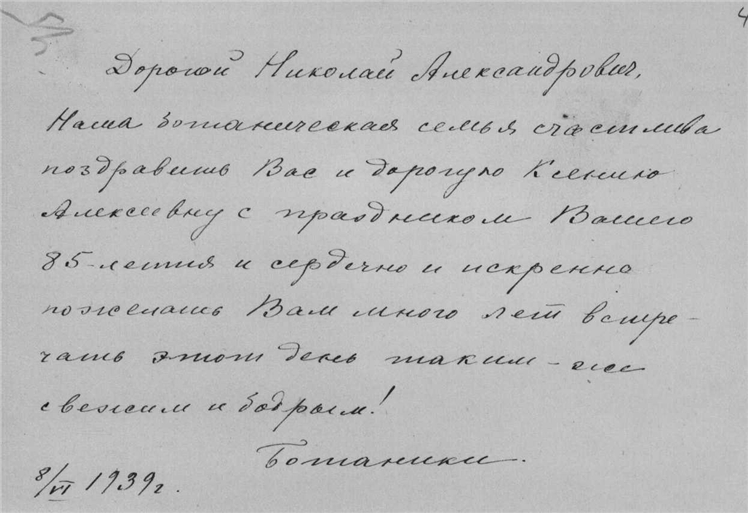 4
Дорогой Николай Александрович,
Наша ботаническая семья счастлива
поздравить Вас и дорогую Ксению
Алексеевну с праздником Вашего
85-летия и сердечно и искренно
пожелать Вам много лет встре-
чать этот день таким-же
свежим и бодрым!
Ботаники.
8/VI 1939г.